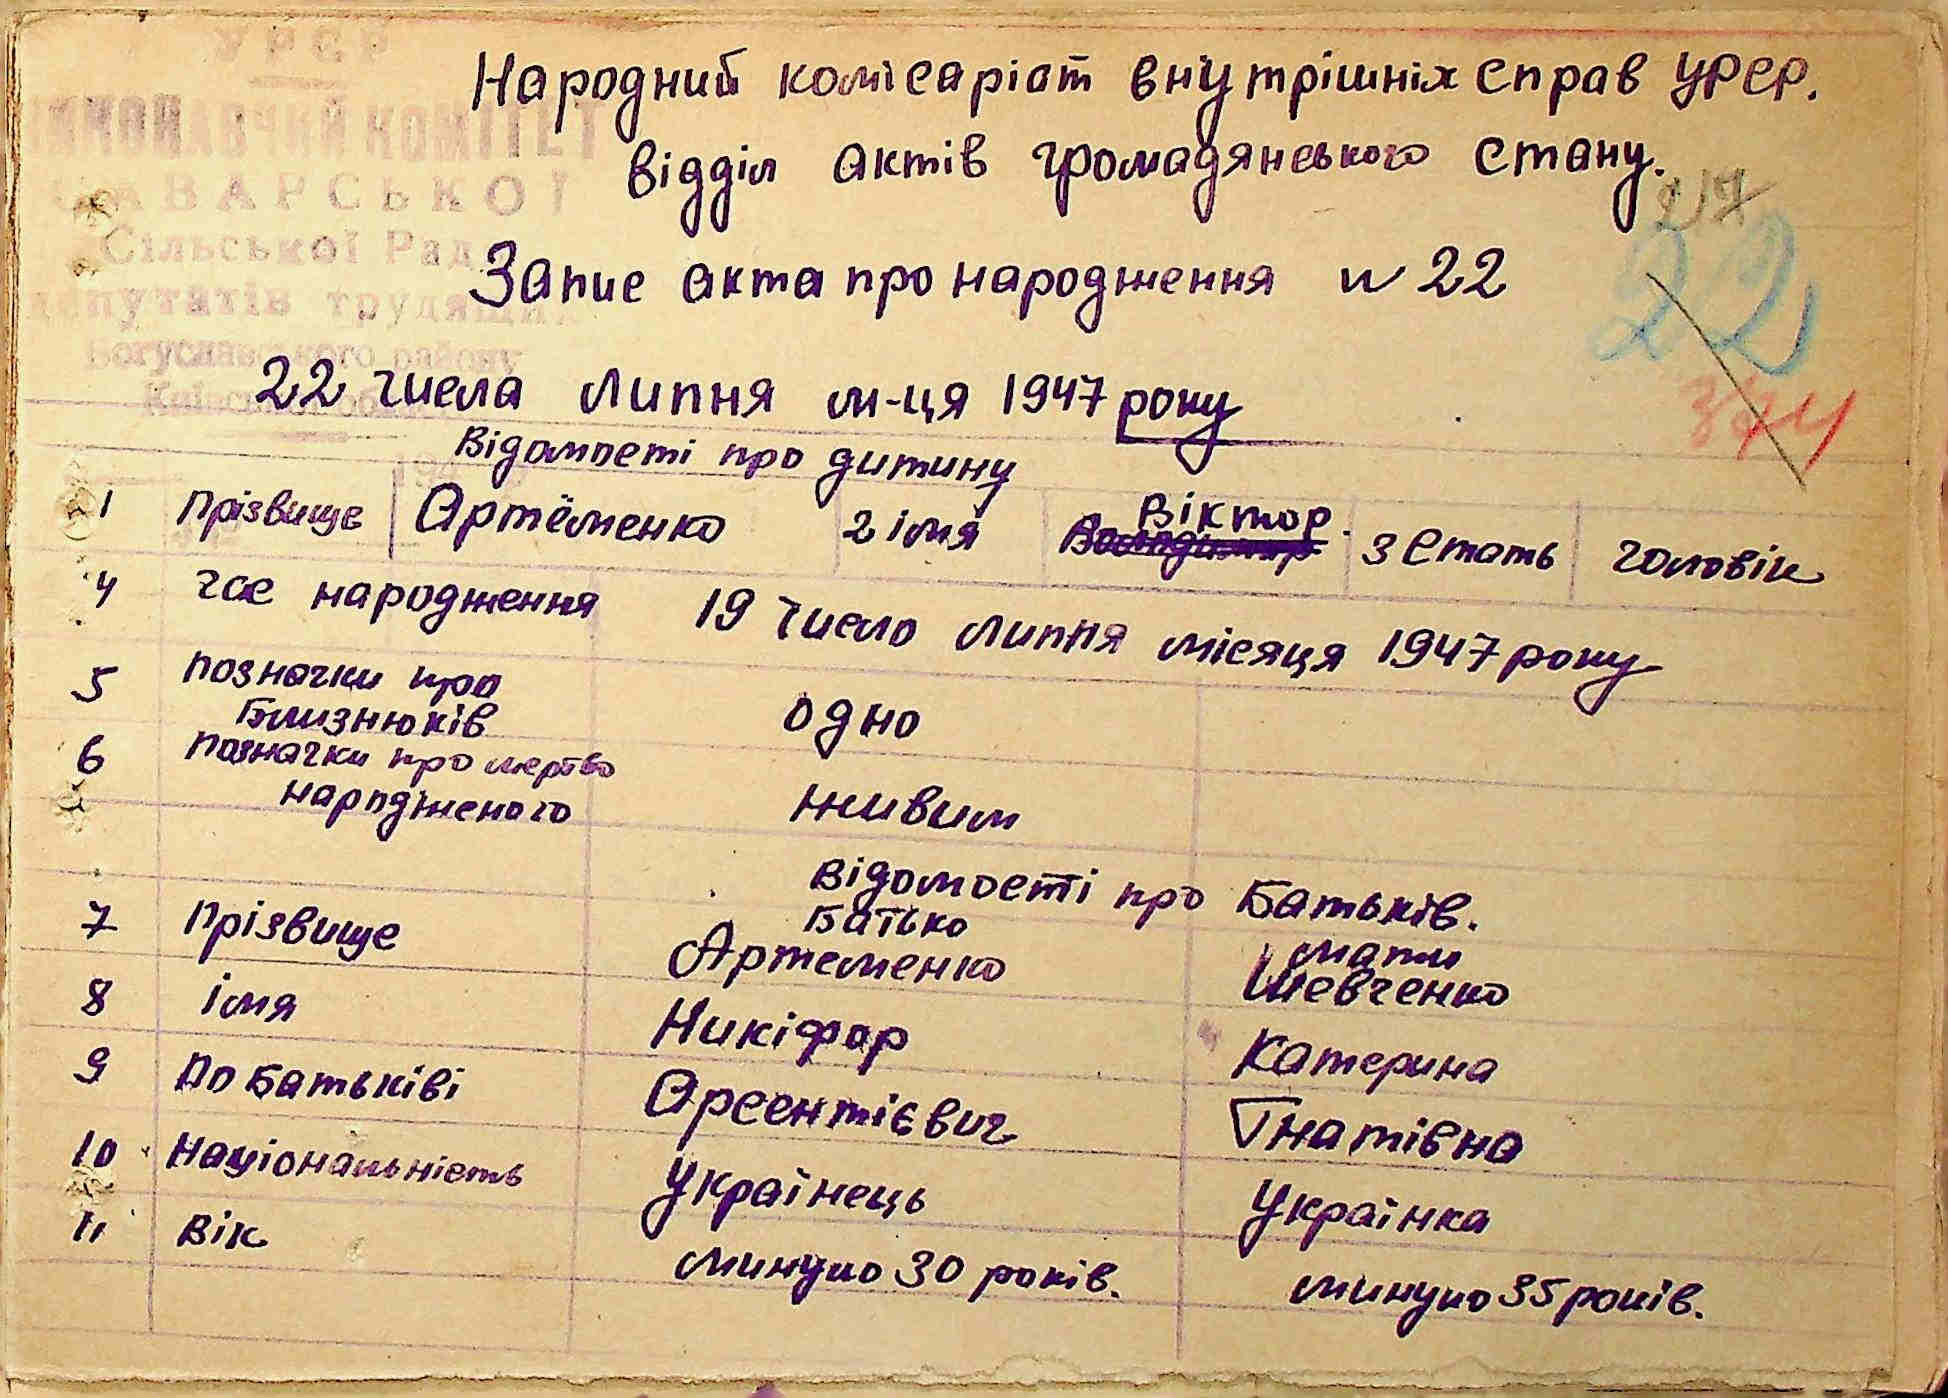 УРСР
ВИКОНАВЧИЙ КОМІТЕТ
САВАРСЬКОЇ
Сільської Ради
депутатів трудящих
Богуславського району
Київської обл.
Народний комісаріат внутрішніх справ УРСР.
Відділ актів громадянського стану.
217
Запис акта про народження N 22
22
22 числа липня м-ця 1947 року
Відомости про дитину
1 Прізвище Артёменко 2 імя Віктор Володимир 3 стать чоловік
4 час народження 19 число липня місяця 1947 року
5 позначки про близнюків одно
6 позначки про мертво народженого живим
Відомості про батьків.
Батько мати
7 Прізвище Артеменко Шевченко
8 імя Никіфор Катерина
9 По батькові Арсентієвич Гнатівна
10 Національність Українець Українка
11 вік минуло 30 років. минуло 35 років.